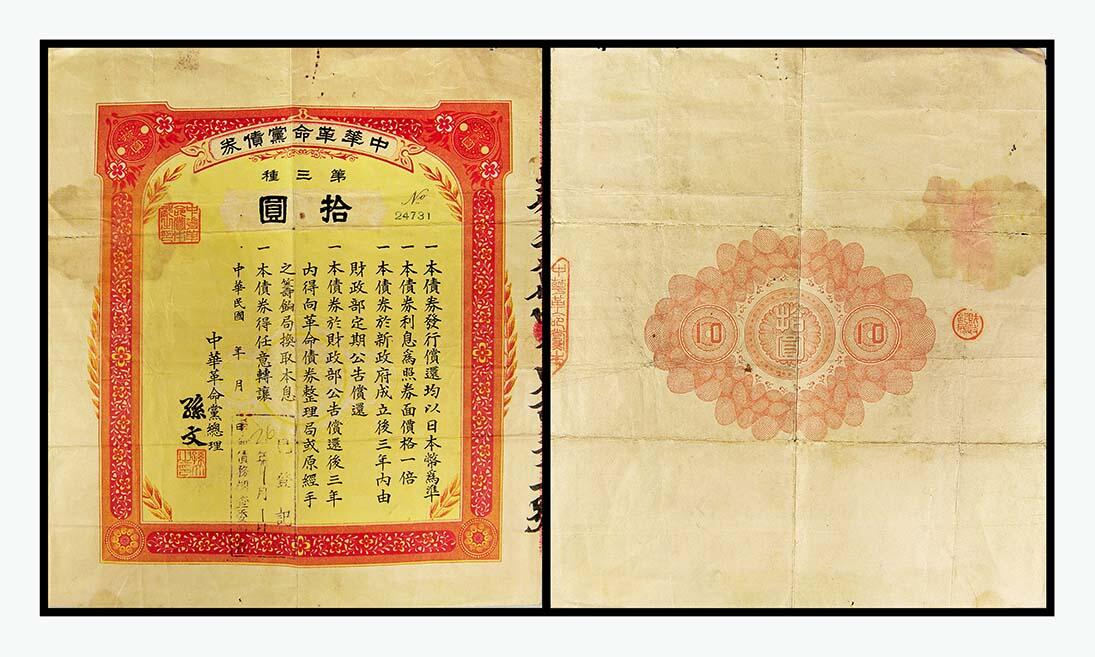 中華革命黨債券
第三種
拾圓
No 24731
一本債券發行償還均以日本幣為準
一本債券利息為照券面價格一倍
一本債券於新政府成立後三年內由
財政部定期公告償還
一本債券於財政部公告償還後三年
內得向革命債券整理局或原經手
之籌餉局換取本息
一本債券得任意轉讓
中華民國 年 月
中華革命黨總理
孫文
拾圓
10
10